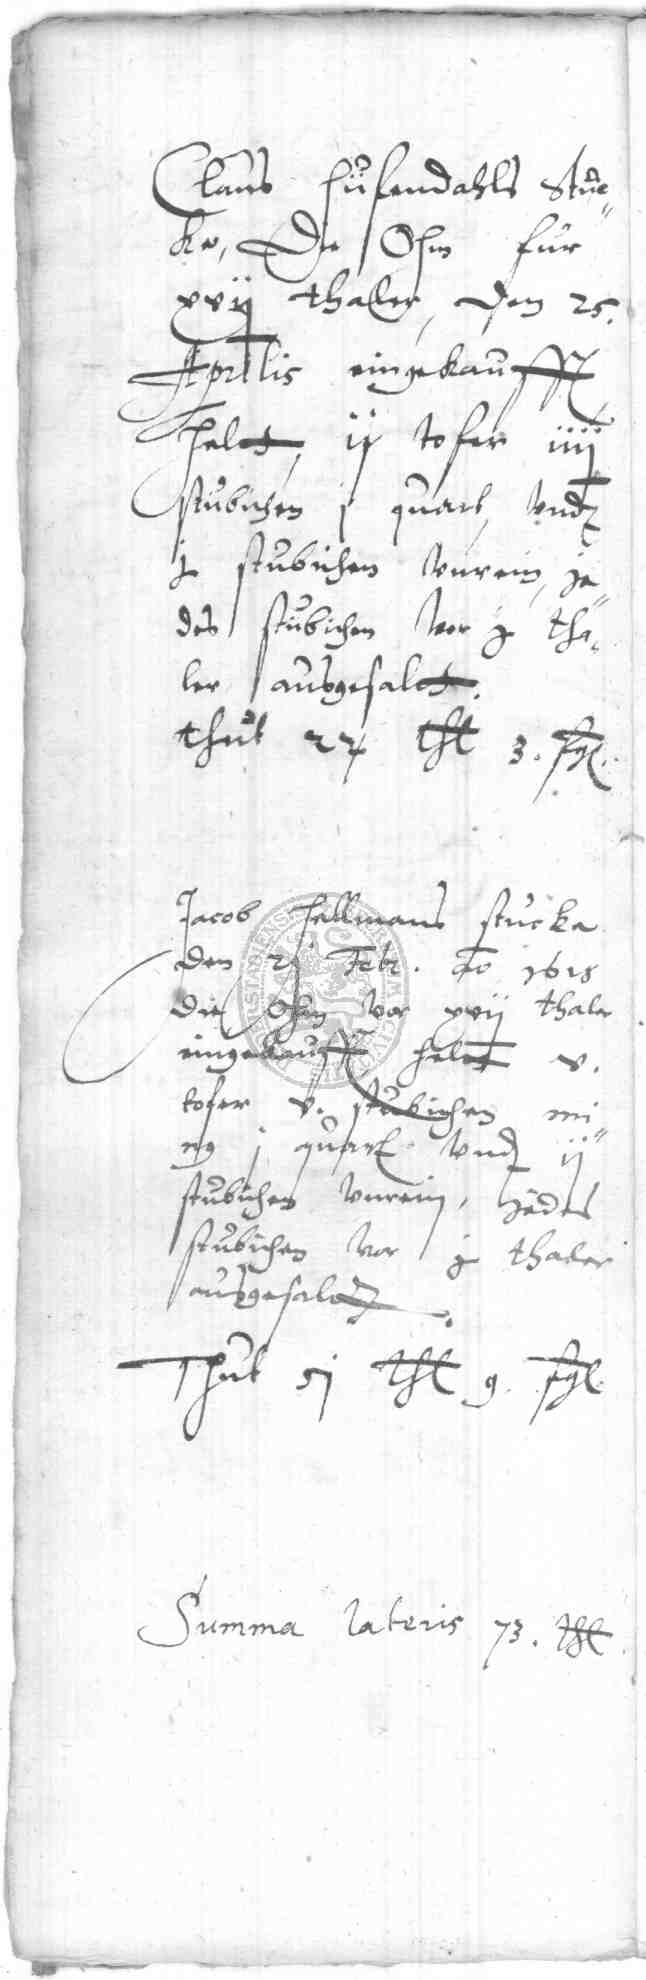 Claus Husendahls Stu-
ke, Die Ohm für
xvij thaler, den 25.
Aprilis eingekaufft
helt, ij tofer iiij
stübichen j quart, undt
j stübichen unrein, je-
des stübichen vor j tha-
ler ausgesalet.
thut 22 thl 3. sgl.
Jacob Hellmans stucke
den 21 Febr. Ao 1615
die Ohm vor xvij thaler
eingekaufft helt v.
tofer v. stübichen mi-
ng j quart undt ij
stübichen unrein, jedes
stübichen vor j thaler
ausgesalet.
Thut 51 thl 9. sgl.
Summa lateris 73. thl